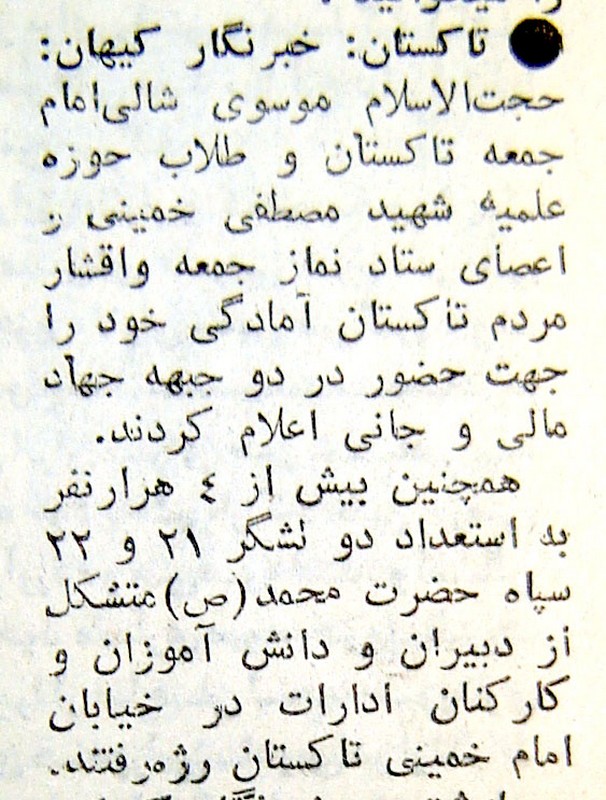 تاکستان: خبرنگار کیهان:
حجت‌الاسلام موسوی شالی‌امام
جمعه تاکستان و طلاب حوزه
علمیه شهید مصطفی خمینی و
اعضای ستاد نماز جمعه واقشار
مردم تاکستان آمادگی خود را
جهت حضور در دو جبهه جهاد
مالی و جانی اعلام کردند.
همچنین بیش از ٤ هزارنفر
به استعداد دو لشگر ۲۱ و ۲۲
سپاه حضرت محمد(ص)متشکل
از دبیران و دانش آموزان و
کارکنان ادارات در خیابان
امام خمینی تاکستان رژه‌رفتند.